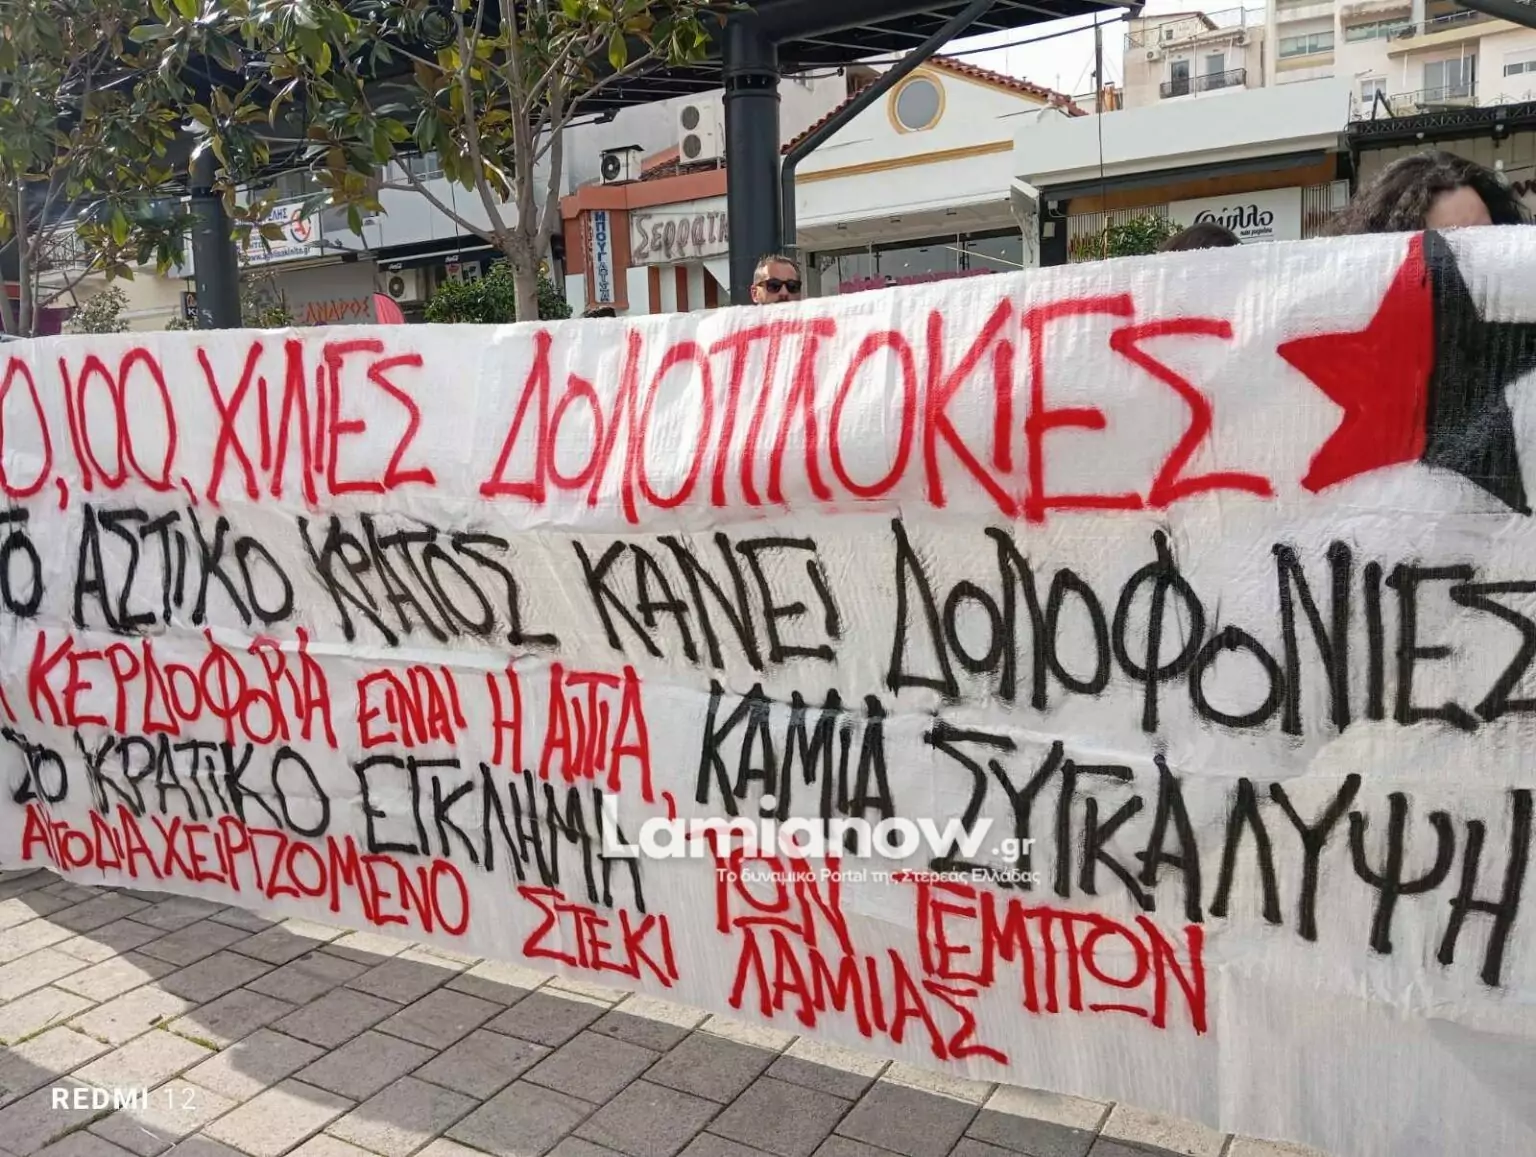 ΕΛΗΣ
ΜΠΟΥΓΑΤΣΑ
Σερραϊκ
φύλλο
ΞΑΝΔΡΟΣ
0,100, ΧΙΛΙΕΣ ΔΟΛΟΠΛΟΚΙΕΣ
ΤΟ ΑΣΤΙΚΟ ΚΡΑΤΟΣ ΚΑΝΕΙ ΔΟΛΟΦΟΝΙΕΣ
ΚΕΡΔΟΦΟΡΙΑ ΕΙΝΑΙ Η ΑΙΤΙΑ, ΚΑΜΙΑ ΣΥΓΚΑΛΥΨΗ
ΣΤΟ ΚΡΑΤΙΚΟ ΕΓΚΛΗΜΑ ΤΩΝ ΤΕΜΠΩΝ
ΑΥΤΟΔΙΑΧΕΙΡΙΖΟΜΕΝΟ ΣΤΕΚΙ ΛΑΜΙΑΣ
Lamianow.gr
Το δυναμικό Portal της Στερεάς Ελλάδας
REDMI 12